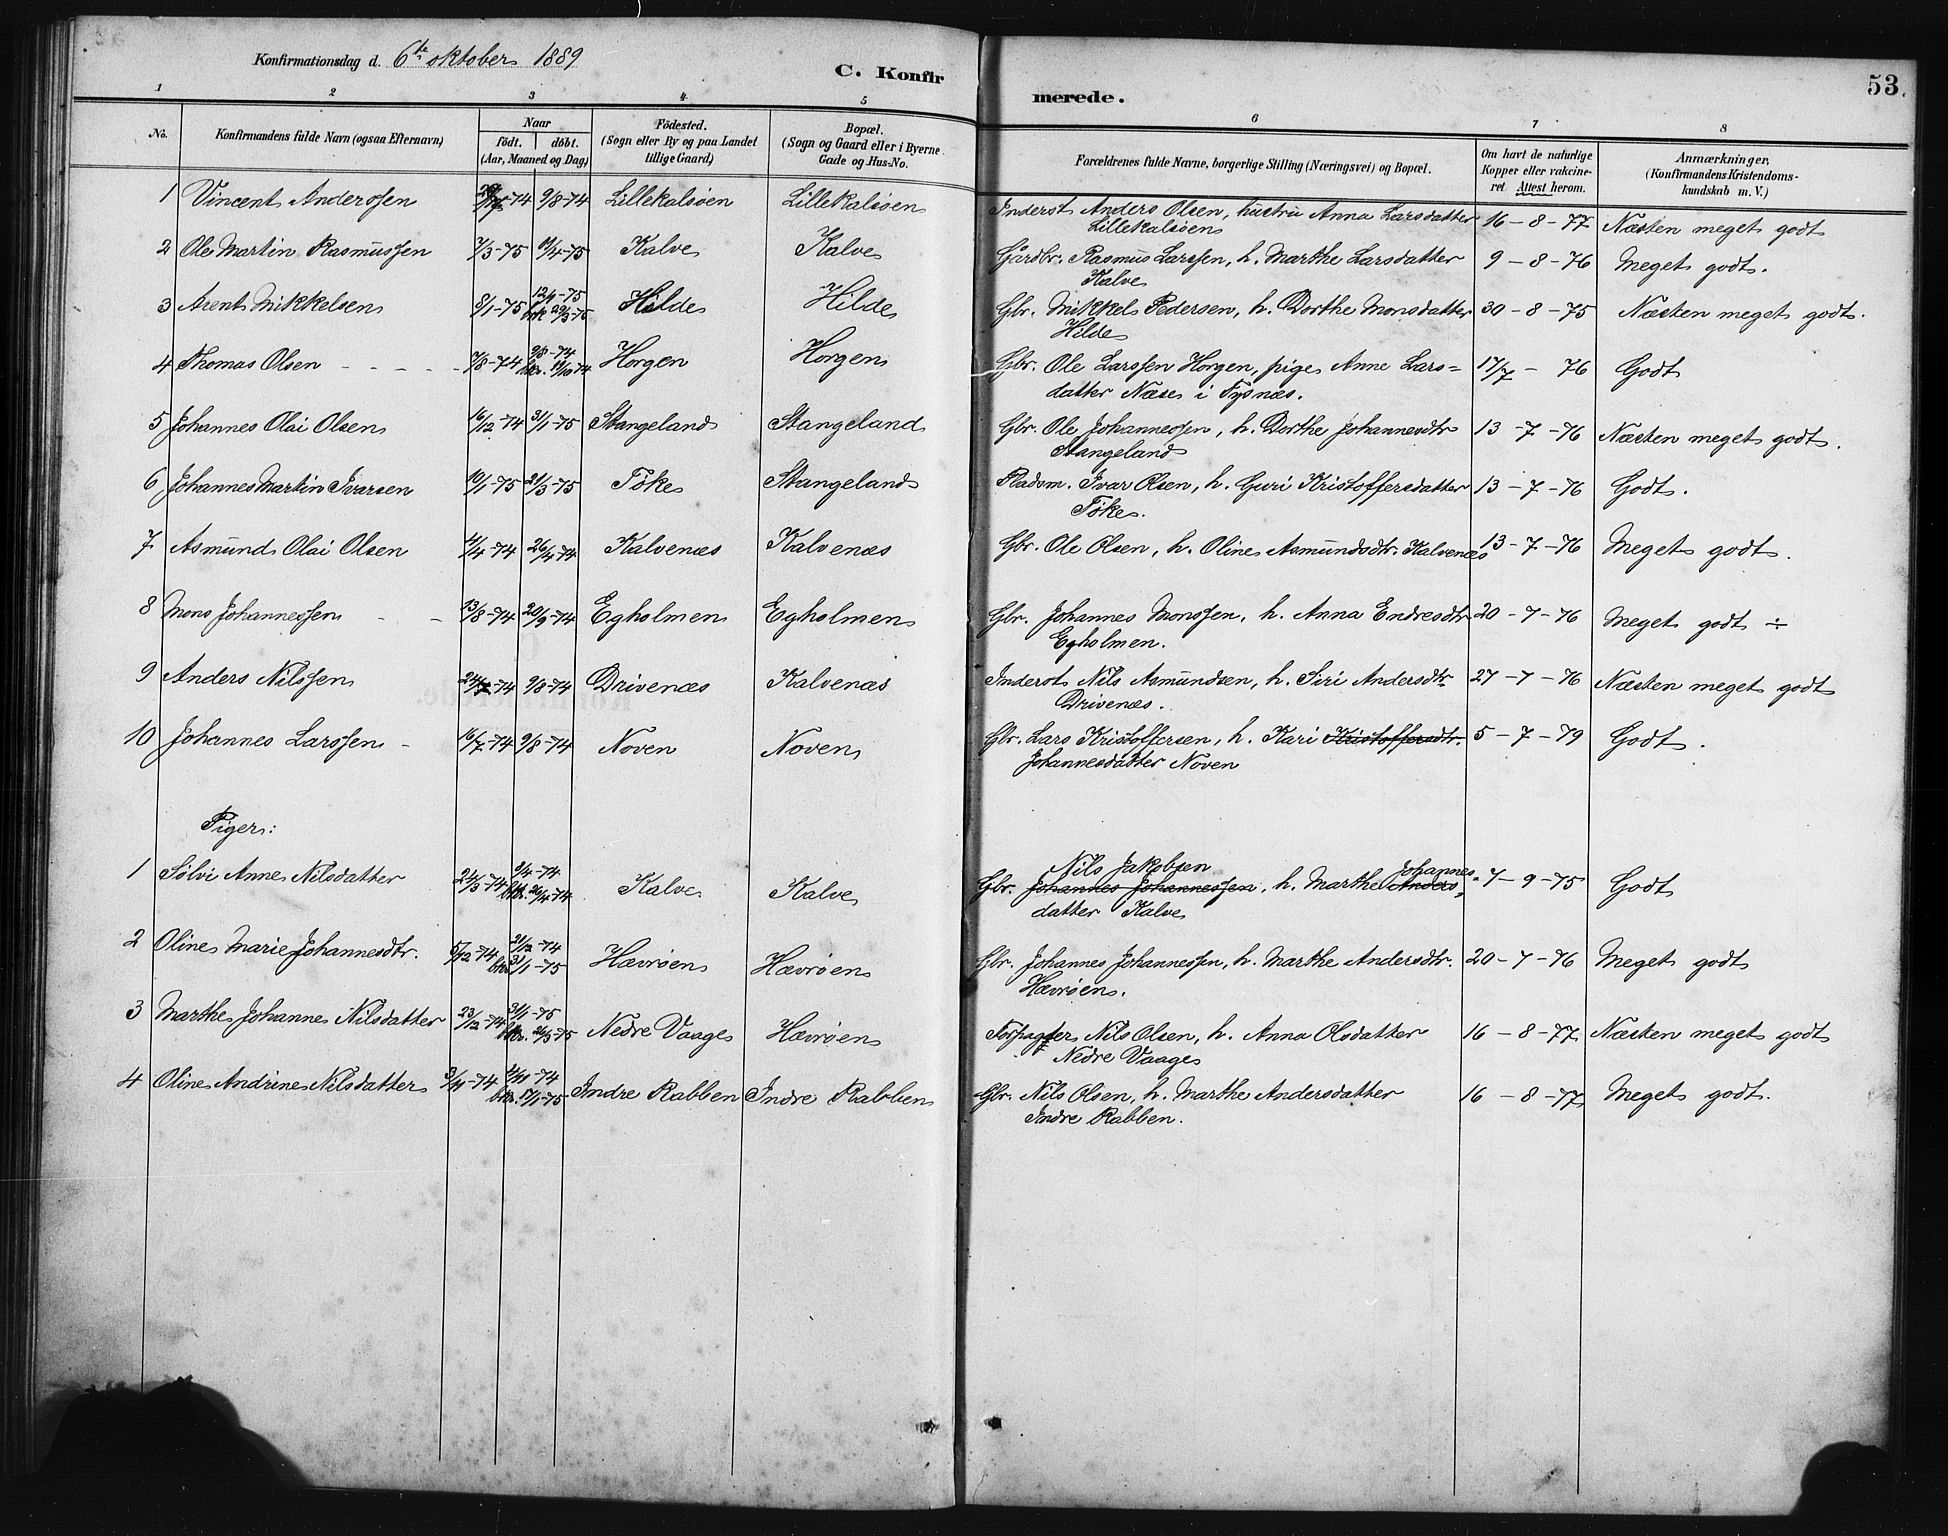 Konfirmationsdag d. 6te oktober 1889
C. Konfirmerede.
53.
1 2 3 4 5 6 7 8
No.
Konfirmandens fulde Navn (ogsaa Efternavn)
Naar
födt. döbt.
(Aar, Maaned og Dag)
Födested.
(Sogn eller By og paa Landet
tillige Gaard)
Bopæl.
(Sogn og Gaard eller i Byerne
Gade og Hus-No.
Forældrenes fulde Navne, borgerlige Stilling (Næringsvei) og Bopæl.
Om havt de naturlige
Kopper eller vakcine-
ret. Attest herom.
Anmærkninger,
(Konfirmandens Kristendoms-
kundskab m. V.)
1 Vincent Anderssen 74 9/8-74 Lillekalsöen Lillekalsöen Inderst Anders Olsen, hustru Anna Larsdatter 16-8-77 Næsten meget godt
Lillekalsöen
2 Ole Martin Rasmussen 7/3-75 /4-75 Kalve Kalve Gårdbr. Rasmus Larssen, h. Marthe Larsdatter 9-8-76 Meget godt.
Kalve
3 Arent Mikkelsen 8/1-75 12/1-75 Hilde Hilde Gbr. Mikkel Pedersen, h. Dorthe Monsdatter 30-8-75 Næsten meget godt.
bkr. 29/3-75
Hilde
4 Thomas Olsen - - - - 7/8-74 9/8-74 Horgen Horgen Gbr. Ole Larssen Horgen, pige Anne Lars= 17/7 - 76 Godt
bkr. 18/10-74
datter Næse i Tysnæs.
5 Johannes Olai Olsen 16/12-74 31/1-75 Stangeland Stangeland Gbr. Ole Johannessen, h. Dorthe Johannesdtr 13-7-76 Næsten meget godt.
Stangeland
6 Johannes Martin Ivarsen 10/1-75 21/3-75 Töke Stangeland Pladsm. Ivar Olsen, h. Guri Kristoffersdatter 13-7-76 Godt.
Töke.
7 Asmund Olai Olsen /4-74 26/4-74 Kalvenæs Kalvenæs Gbr. Ole Olsen, h. Oline Asmundsdtr. Kalvenæs 13-7-76 Meget godt.
8 Mons Johannessen - - 13/8-74 20/9-74 Egholmen Egholmen Gbr. Johannes Monssen, h. Anna Endresdtr 20-7-76 Meget godt ÷
Egholmen.
9 Anders Nilssen 24/7-74 9/8-74 Drivenæs Kalvenæs Inderst Nils Asmundsen, h. Siri Andersdtr. 27-7-76 Næsten meget godt
Drivenæs.
10 Johannes Larssen - 16/7-74 9/8-74 Noven Noven Gbr. Lars Kristoffersen, h. Kari Kristoffersdtr. 5-7-79 Godt.
Johannesdatter Noven
Piger:
Nils Jakobsen Johannes-
1 Sølvi Anne Nilsdatter 24/3-74 3/4-74 Kalve Kalve Gbr. Johannes Johannessen, h. Marthe Anders= 7-9-75 Godt
bkr. 26/4-74
datter Kalve
2 Oline Marie Johannesdtr. 5/12-74 21/12-74 Hævröen Hævröen Gbr. Johannes Johannessen, h. Marthe Andersdtr. 20-7-76 Meget godt
bkr. 31/1-75
Hævröen.
3 Marthe Johanne Nilsdatter 23/12-74 31/1-75 Nedre Vaage Hævröen Forpagter Nils Olsen, h. Anna Olsdatter 16-8-77 Næsten meget godt
bkr. 26/3-75
Nedre Vaage
4 Oline Andrine Nilsdatter 3/11-74 /11-74 Indre Rabben Indre Rabben Gbr. Nils Olsen, h. Marthe Andersdatter 16-8-77 Meget godt.
bkr. 17/1-75
Indre Rabben.